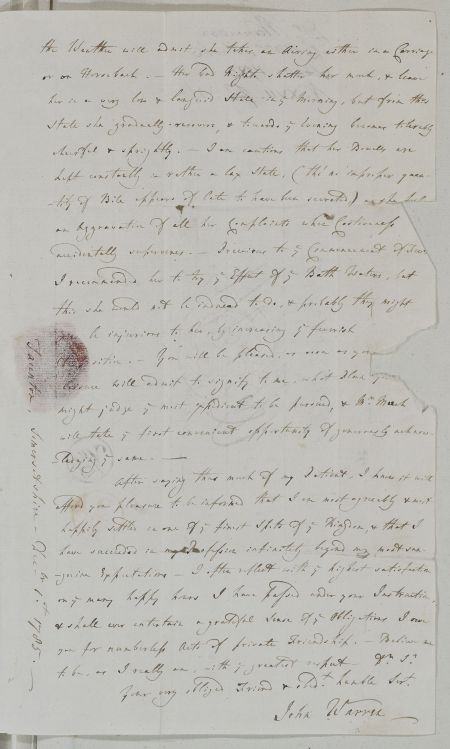 the Weather will admit, she takes an Airing either in a Carriage
or on Horseback. — Her bad Nights shatter her much, & leave
her in a very low & languid State in ye Morning, but from this
State she gradually recovers, & towards ye Evening becomes tolerably
chearful & sprightly. — I am cautious that her Bowels are
kept constantly in rather a lax State, (tho' no improper quan-
-tity of Bile appears of late to have been secreted) as she feels
an Aggravation of all her Complaints when Costiveness
accidentally supervenes. — Previous to ye Commencement of
I recommended her to try ye Effect of ye Bath Waters, but
this she could not be induced to do, & probably they might
be injurious to her, by increasing ye feverish
. — You will be pleased, as soon as your
will admit to signify to me, what Plan you
might judge ye most expedient to be pursued, & Mr.
will take ye first convenient opportunity of generously acknow-
-ledging ye same. —
After saying thus much of my Patient, I know it will
afford you pleasure to be informed that I am most agreeably & most
happily settled in one of ye finest Spots of ye Kingdom, & that I
have succeeded in my Profession infinitely beyond my most san-
-guine Expectations — I often reflect with ye highest satisfaction
on ye many happy hours I have passed under your Instruction,
& shall ever entertain a grateful Sense of ye Obligations I owe
you for numberless Acts of private Friendship. — Believe me
to be, as I really am, with ye greatest respect Dr. Sr.
Your very obliged Friend & Obedt. humble Servt.
John Warren
Taunton, Somersetshire — Decr. 1st 1785. —